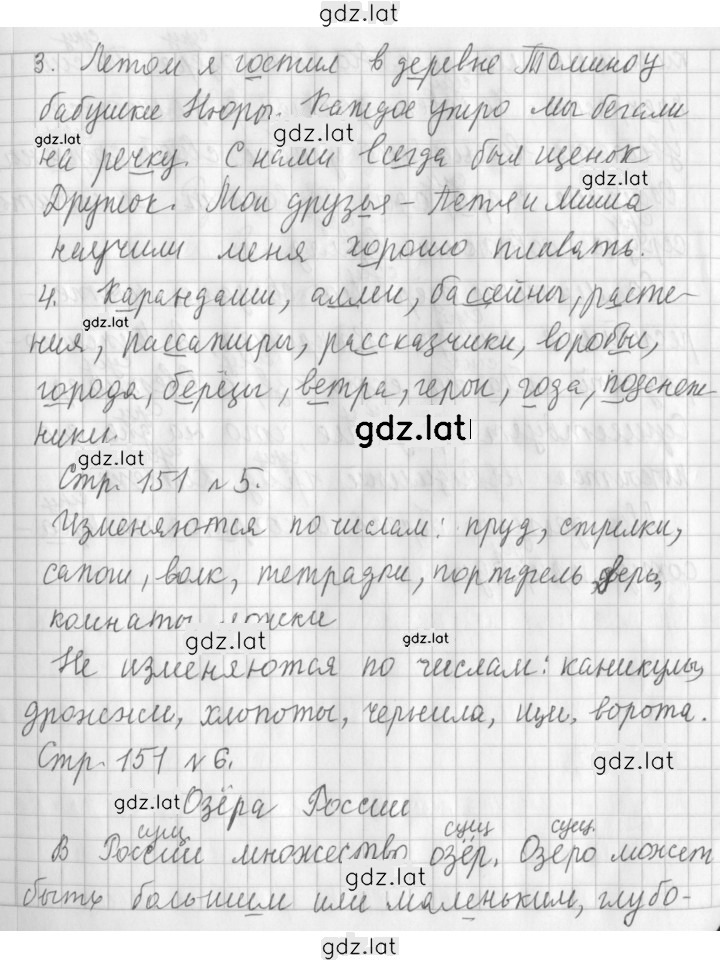 gdz.lat
3. Летом я гостил в деревне Томино у
бабушки Нюры. Каждое утро мы бегали
gdz.lat
gdz.lat
на речку. С нами всегда был щенок
gdz.lat
Дружок. Мои друзья – Петя и Миша
научили меня хорошо плавать.
4. Карандаши, аллеи, бассейны, расте-
gdz.lat
ния, пассажиры, рассказчики, воробьи,
города, берёзы, ветра, герои, года, подснеж-
ники.
gdz.lat
gdz.lat
Стр. 151 №5.
Изменяются по числам: пруд, стрелки,
сапоги, волк, тетрадки, портфель, дверь,
комнаты
gdz.lat
gdz.lat
Не изменяются по числам: каникулы,
дрожжи, хлопоты, чернила, щи, ворота.
Стр. 151 №6.
gdz.lat
gdz.lat
Озёра России
сущ. сущ сущ.
В России множество озёр. Озеро может
gdz.lat
быть большим или маленьким, глубо-
gdz.lat